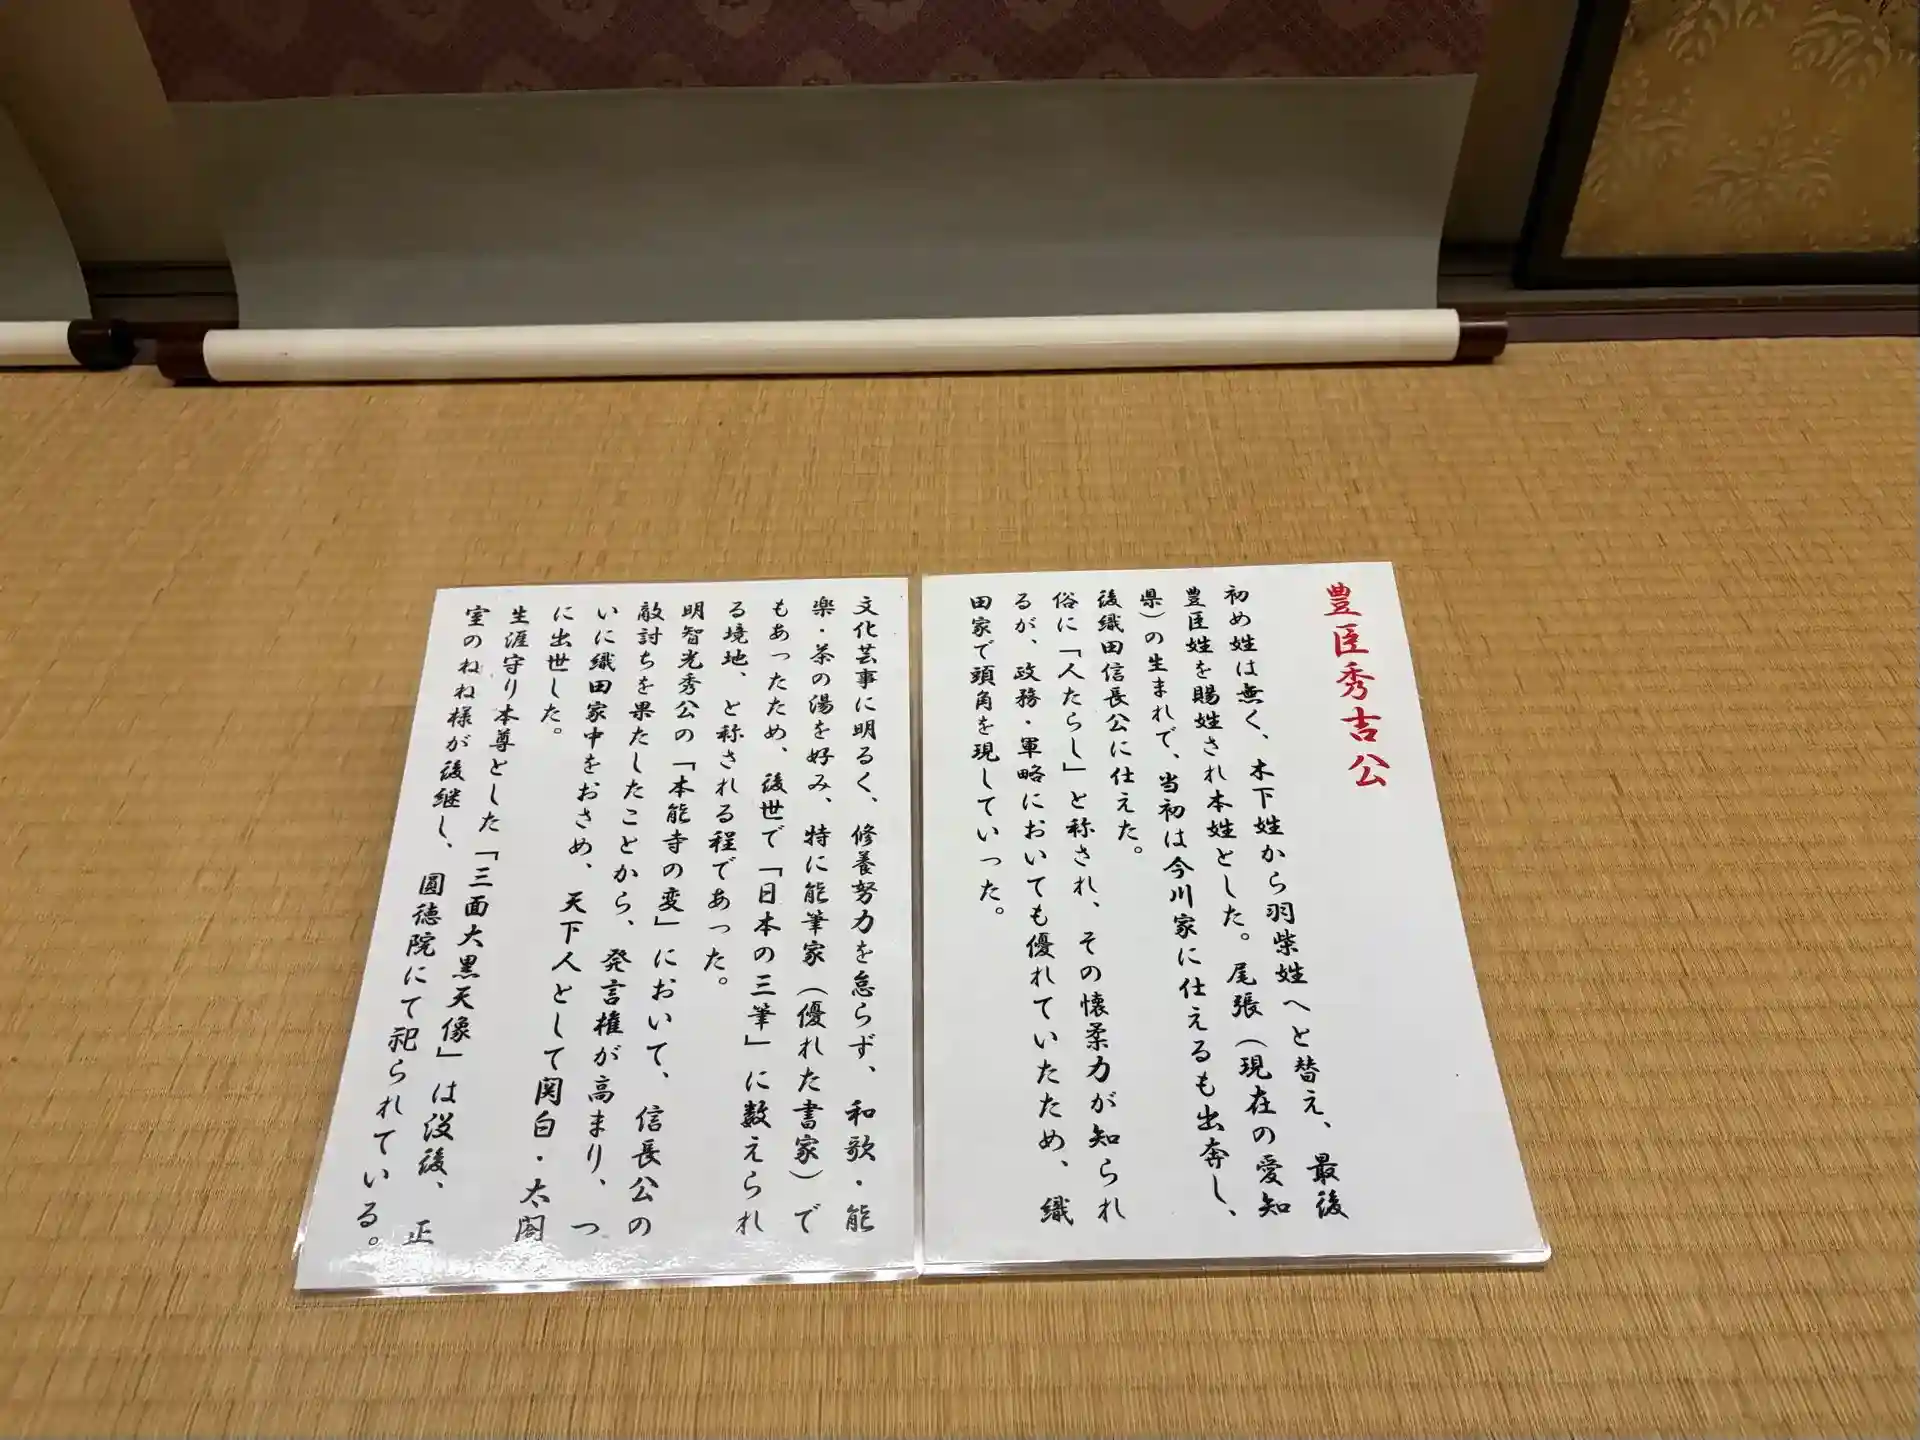 豊臣秀吉公
初め姓は無く、木下姓から羽柴姓へと替え、最後
豊臣姓を賜姓され本姓とした。尾張（現在の愛知
県）の生まれで、当初は今川家に仕えるも出奔し、
後織田信長公に仕えた。
俗に「人たらし」と称され、その懐柔力が知られ
るが、政務・軍略においても優れていたため、織
田家で頭角を現していった。
文化芸事に明るく、修養努力を怠らず、和歌・能
楽・茶の湯を好み、特に能筆家（優れた書家）で
もあったため、後世で「日本の三筆」に数えられ
る境地、と称される程であった。
明智光秀公の「本能寺の変」において、信長公の
敵討ちを果たしたことから、発言権が高まり、つ
いに織田家中をおさめ、天下人として関白・太閤
に出世した。
生涯守り本尊とした「三面大黒天像」は没後、正
室のねね様が後継し、圓徳院にて祀られている。